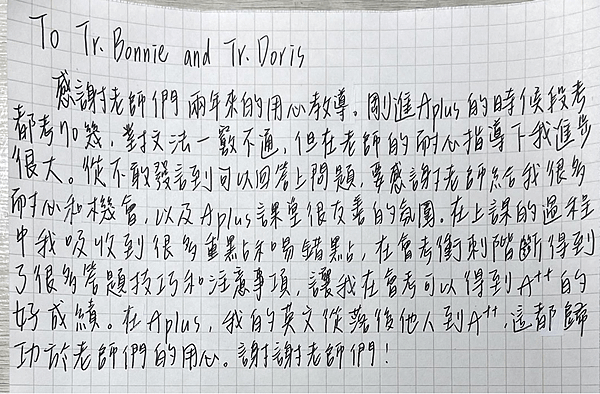 To Tr. Bonnie and Tr. Doris
感謝老師們兩年來的用心教導。剛進Aplus的時候段考
都考70幾,對文法一竅不通,但在老師的耐心指導下我進步
很大。從不敢發言到可以回答上問題,要感謝老師給我很多
耐心和機會,以及Aplus課堂很友善的氛圍。在上課的過程
中我吸收到很多重點和易錯點,在會考衝刺階斷得到
了很多答題技巧和注意事項,讓我在會考可以得到A++的
好成績。在Aplus,我的英文從落後他人到A++,這都歸
功於老師們的用心。謝謝老師們!